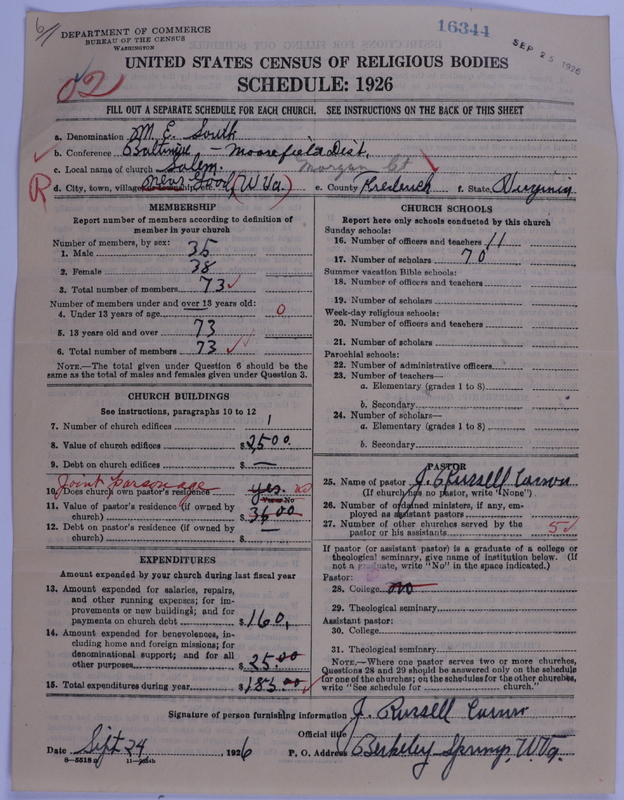 6/
DEPARTMENT OF COMMERCE
BUREAU OF THE CENSUS
WASHINGTON
16344
SEP 25 1926
02
UNITED STATES CENSUS OF RELIGIOUS BODIES
SCHEDULE: 1926
FILL OUT A SEPARATE SCHEDULE FOR EACH CHURCH. SEE INSTRUCTIONS ON THE BACK OF THIS SHEET
a. Denomination M. E. South
b. Conference Baltimore – Moorefield Dist.
c. Local name of church Salem. Morgan Ct
R d. City, town, village, or township (W Va) e. County Frederick f. State Virginia
MEMBERSHIP
Report number of members according to definition of
member in your church
Number of members, by sex:
1. Male 35
2. Female 38
3. Total number of members 73
Number of members under and over 13 years old:
4. Under 13 years of age 0
5. 13 years old and over 73
6. Total number of members 73
NOTE.—The total given under Question 6 should be
the same as the total of males and females given under Question 3.
CHURCH BUILDINGS
See instructions, paragraphs 10 to 12
7. Number of church edifices 1
8. Value of church edifices $2,500
9. Debt on church edifices $ —
Joint parsonage
10. Does church own pastor's residence yes. no
Yes or No
11. Value of pastor's residence (if owned by
church) $3600
12. Debt on pastor's residence (if owned by
church) $ —
EXPENDITURES
Amount expended by your church during last fiscal year
13. Amount expended for salaries, repairs,
and other running expenses; for im-
provements or new buildings; and for
payments on church debt $160.
14. Amount expended for benevolences, in-
cluding home and foreign missions; for
denominational support; and for all
other purposes $25.00
15. Total expenditures during year $185.00
CHURCH SCHOOLS
Report here only schools conducted by this church
Sunday schools:
16. Number of officers and teachers 11
17. Number of scholars 70
Summer vacation Bible schools:
18. Number of officers and teachers
19. Number of scholars
Week-day religious schools:
20. Number of officers and teachers
21. Number of scholars
Parochial schools:
22. Number of administrative officers
23. Number of teachers—
a. Elementary (grades 1 to 8)
b. Secondary
24. Number of scholars—
a. Elementary (grades 1 to 8)
b. Secondary
PASTOR
25. Name of pastor J. Russell
(If church has no pastor, write "None")
26. Number of ordained ministers, if any, em-
ployed as assistant pastors
27. Number of other churches served by the
pastor or his assistants 5
If pastor (or assistant pastor) is a graduate of a college or
theological seminary, give name of institution below. (If
not a graduate, write "No" in the space indicated.)
Pastor:
28. College no
29. Theological seminary
Assistant pastor:
30. College
31. Theological seminary
NOTE.—Where one pastor serves two or more churches,
Questions 28 and 29 should be answered only on the schedule
for one of the churches; on the schedules for the other churches,
write "See schedule for church."
Signature of person furnishing information J. Russell
Official title
Date Sept 24, 1926 P. O. Address Berkeley Springs, W. Va.
8—5518a